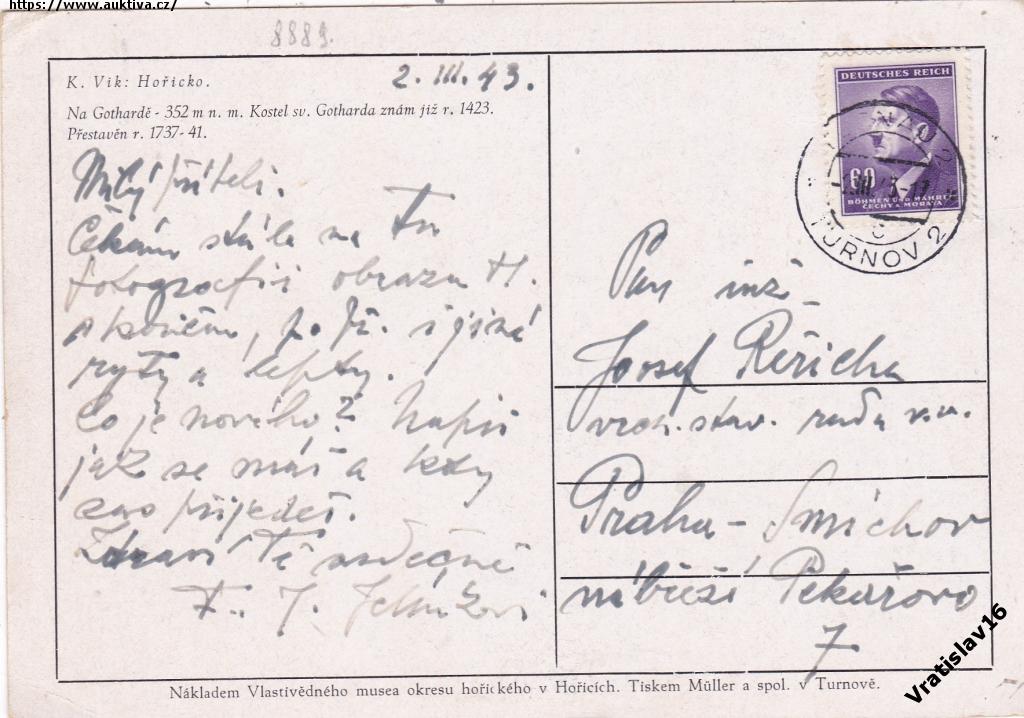 https://www.auktiva.cz/
8889.
K. Vik: Hořicko.
2. III. 43.
Na Gothardě - 352 m n. m. Kostel sv. Gotharda znám již r. 1423.
Přestavěn r. 1737-41.
Milý příteli.
Čekám stále na
fotografii obrazu H.
i jiné
ryty a lepty.
Co je nového? Napiš
jak se máš a kdy
zas přijedeš.
Zdraví Tě srdečně
F. J.
DEUTSCHES REICH
60
BÖHMEN UND MÄHREN
ČECHY A MORAVA
TURNOV 2
Pan inž.
Josef Řeřicha
vrch. stav. rada v. v.
Praha - Smíchov
nábřeží Pekařovo
7
Nákladem Vlastivědného musea okresu hořického v Hořicích. Tiskem Müller a spol. v Turnově.
Vratislav16